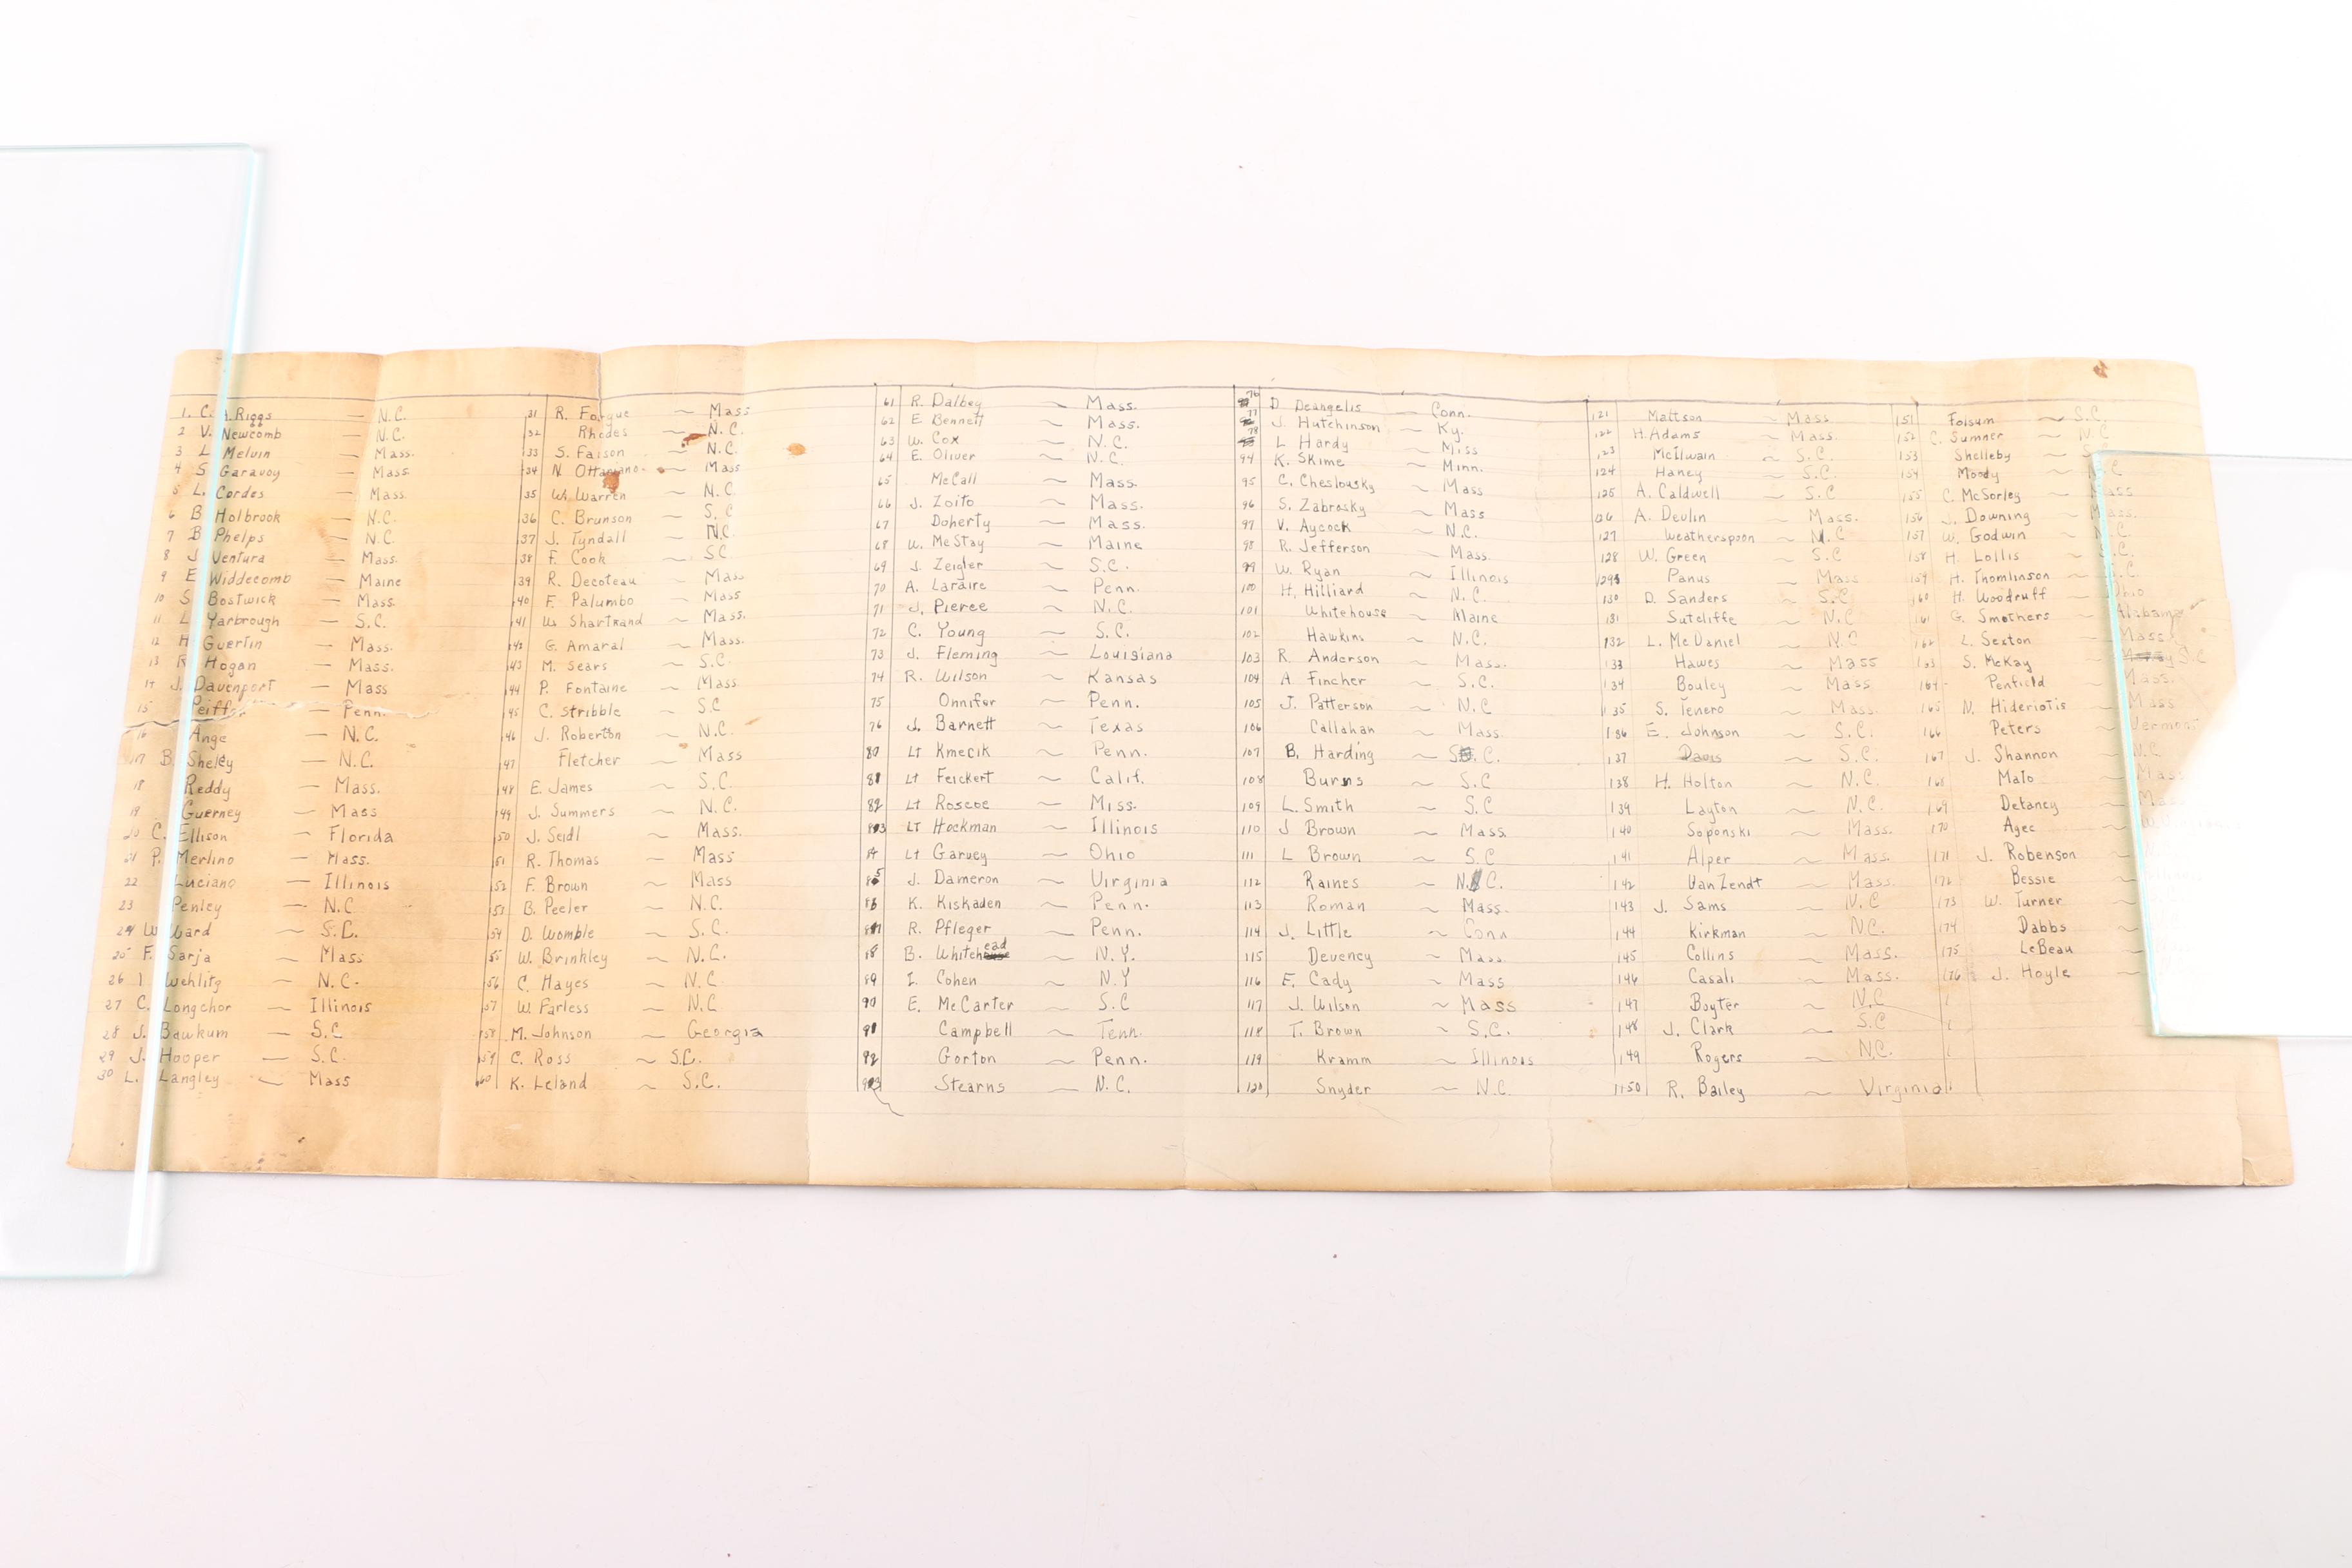 1. C. A. Riggs — N.C.
2 V. Newcomb — N.C.
3 L. Melvin — Mass.
4 S. Garavoy — Mass.
5 L. Cordes — Mass.
6 B. Holbrook — N.C.
7 B. Phelps — N.C.
8 J. Ventura — Mass.
9 E. Widdecomb — Maine
10 S. Bostwick — Mass.
11 L. Yarbrough — S.C.
12 H. Guertin — Mass.
13 R. Hogan — Mass.
14 J. Davenport — Mass
15 — Penn.
16 Ange — N.C.
17 B. Sheley — N.C.
18 Reddy — Mass.
19 Guerney — Mass
20 C. Ellison — Florida
21 P. Merlino — Mass.
22 Luciano — Illinois
23 Penley — N.C.
24 W. Ward — S.C.
25 F. Sarja — Mass
26 I. Wehlitz ~ N.C.
27 C. Longchor ~ Illinois
28 J. Bawkum — S.C.
29 J. Hooper — S.C.
30 L. Langley — Mass
31 R. Forgue ~ Mass
32 Rhodes ~ N.C.
33 S. Faison ~ N.C.
34 N. Ottariano ~ Mass
35 W. Warren ~ N.C.
36 C. Brunson ~ S.C
37 J. Tyndall ~ N.C.
38 F. Cook ~ S.C.
39 R. Decoteau ~ Mass
40 F. Palumbo ~ Mass
41 W. Shartrand ~ Mass.
42 G. Amaral ~ Mass.
43 M. Sears ~ S.C.
44 P. Fontaine ~ Mass
45 C. Stribble ~ S.C
46 J. Roberton ~ N.C.
47 Fletcher ~ Mass
48 E. James ~ S.C.
49 J. Summers ~ N.C.
50 J. Seidl ~ Mass.
51 R. Thomas ~ Mass
52 F. Brown ~ Mass
53 B. Peeler ~ N.C.
54 D. Womble ~ S.C.
55 W. Brinkley ~ N.C.
56 C. Hayes ~ N.C
57 W. Farless ~ N.C
58 M. Johnson ~ Georgia
59 C. Ross ~ S.C.
60 K. Leland ~ S.C.
61 R. Dalbey ~ Mass.
62 E. Bennett ~ Mass.
63 W. Cox ~ N.C.
64 E. Oliver ~ N.C.
65 McCall ~ Mass.
66 J. Zoito ~ Mass.
67 Doherty ~ Mass.
68 W. McStay ~ Maine
69 J. Zeigler ~ S.C.
70 A. Laraire ~ Penn.
71 J. Pierce ~ N.C.
72 C. Young ~ S.C.
73 J. Fleming ~ Louisiana
74 R. Wilson ~ Kansas
75 Onnifer ~ Penn.
76 J. Barnett ~ Texas
80 Lt Kmecik ~ Penn.
81 Lt Feickert ~ Calif.
82 Lt Roscoe ~ Miss.
83 LT Hockman ~ Illinois
84 Lt Garvey ~ Ohio
85 J. Dameron ~ Virginia
86 K. Kiskaden ~ Penn.
87 R. Pfleger ~ Penn.
88 B. Whitehead ~ N.Y.
89 I. Cohen ~ N.Y
90 E. McCarter ~ S.C
91 Campbell ~ Tenn.
92 Gorton ~ Penn.
93 Stearns ~ N.C.
76 D. Deangelis ~ Conn.
77 J. Hutchinson ~ Ky.
78 L Hardy ~ Miss
94 K. Skime ~ Minn.
95 C. Cheslousky ~ Mass
96 S. Zabrosky ~ Mass
97 V. Aycock ~ N.C.
98 R. Jefferson ~ Mass.
99 W. Ryan ~ Illinois
100 H. Hilliard ~ N.C.
101 Whitehouse ~ Maine
102 Hawkins ~ N.C.
103 R. Anderson ~ Mass.
104 A Fincher ~ S.C.
105 J. Patterson ~ N.C
106 Callahan ~ Mass.
107 B. Harding ~ S.C.
108 Burns ~ S.C
109 L. Smith ~ S.C
110 J Brown ~ Mass.
111 L Brown ~ S.C
112 Raines ~ N.C.
113 Roman ~ Mass.
114 J. Little ~ Conn
115 Deveney ~ Mass.
116 E. Cady ~ Mass
117 J. Wilson ~ Mass
118 T. Brown ~ S.C.
119 Kramm ~ Illinois
120 Snyder ~ N.C.
121 Mattson ~ Mass
122 H. Adams ~ Mass.
123 McIlwain ~ S.C.
124 Haney ~ S.C.
125 A. Caldwell ~ S.C
126 A. Devlin ~ Mass.
127 Weatherspoon ~ N.C
128 W. Green ~ S.C
129 Panus ~ Mass
130 D. Sanders ~ S.C
131 Sutcliffe ~ N.C
132 L. McDaniel ~ N.C
133 Hawes ~ Mass
134 Bouley ~ Mass
135 S. Tenero ~ Mass.
136 E. Johnson ~ S.C.
137 Davis ~ S.C.
138 H. Holton ~ N.C.
139 Layton ~ N.C.
140 Soponski ~ Mass.
141 Alper ~ Mass.
142 VanZendt ~ Mass.
143 J. Sams ~ N.C
144 Kirkman ~ N.C.
145 Collins ~ Mass.
146 Casali ~ Mass.
147 Boyter ~ N.C
148 J. Clark ~ S.C
149 Rogers ~ N.C.
150 R. Bailey ~ Virginia
151 Folsum ~ S.C
152 C. Sumner ~ N.C
153 Shelleby ~
154 Moody ~
155 C. McSorley ~ Mass
156 J. Downing ~ Mass.
157 W. Godwin ~
158 H. Lollis ~
159 H. Thomlinson ~
160 H. Woodruff ~ Ohio
161 G. Smothers ~ Alabama
162 L. Sexton ~ Mass.
163 S. McKay ~ S.C
164 Penfield ~ Mass.
165 N. Hideriotis ~ Mass
166 Peters ~ Vermont
167 J. Shannon ~ N.C.
168 Malo ~ Mass
169 Delaney ~ Mass
170 Agee ~
171 J. Robenson ~
172 Bessie ~
173 W. Turner ~
174 Dabbs ~
175 LeBeau ~
176 J. Hoyle ~